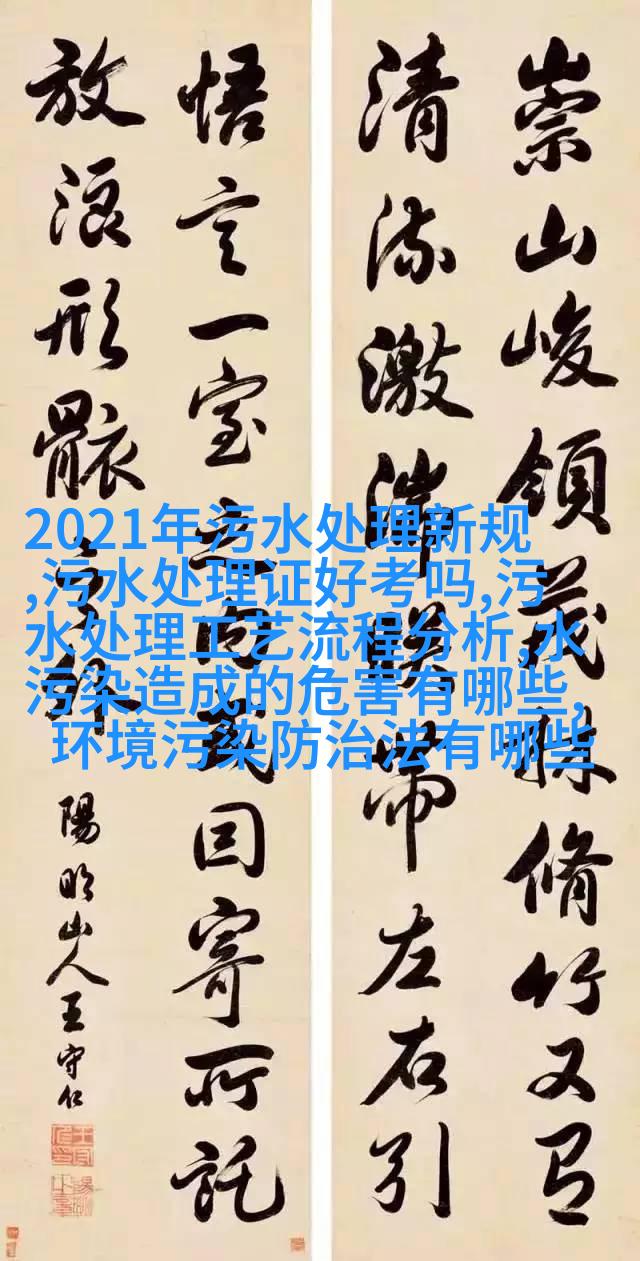 崇山峻領茂林脩竹又有
清流激湍暎帶左右引
悟言一室之内或因寄所託
放浪形骸之外
陽明山人王守仁
2021年污水处理新规
,污水处理证好考吗,污
水处理工艺流程分析,水
污染造成的危害有哪些,
环境污染防治法有哪些